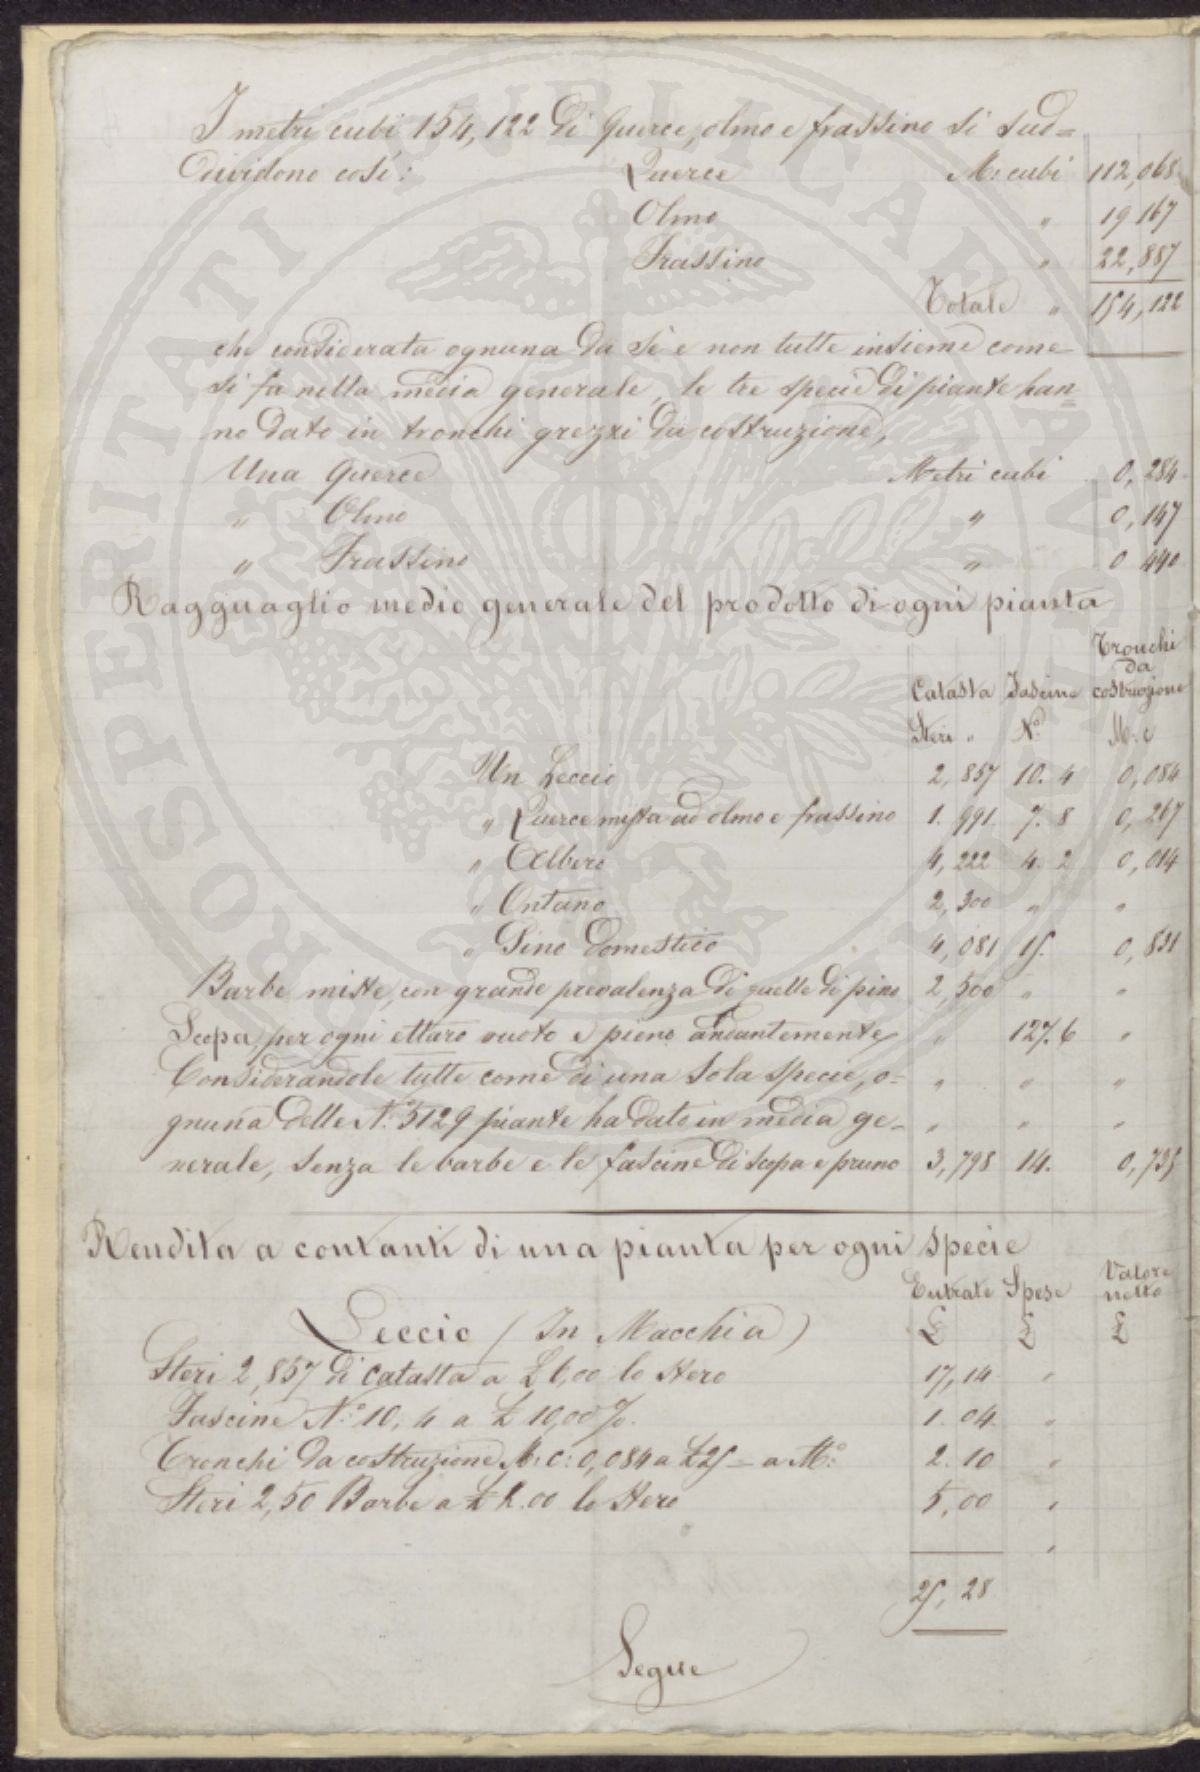 I metri cubi 154,122 di querce, olmo e frassino si sud=
dividono così: Querce M: cubi 112,068
Olmo " 19 167
Frassino " 22,887
Totale " 154,122
che considerata ognuna da sè e non tutte insieme come
si fa nella media generale, le tre specie di piante han=
no dato in tronchi grezzi da costruzione,
Una Querce Metri cubi 0,284
" Olmo " 0,147
" Frassino " 0 440
Ragguaglio medio generale del prodotto di ogni pianta
Catasta Fascine Tronchi da costruzione
Steri " N.o M. c
Un Leccio 2,857 10. 4 0,084
" Querce mista ad olmo e frassino 1. 991 7. 8 0,267
" Albero 4,222 4. 2 0,014
" Ontano 2,300 " "
" Pino domestico 4,081 15. 0,831
Barbe miste, con grande prevalenza di quelle di pino 2,500 " "
Scopa, per ogni ettaro vuoto e pieno andantemente " 127.6 "
Considerandole tutte come di una sola specie, o= " " "
gnuna delle N.o 5129 piante ha dato in media ge- " " "
nerale, senza le barbe e le fascine di scopa e pruno 3,798 14. 0,735
Rendita a contanti di una pianta per ogni specie
Entrate Spese Valore netto
Leccio (In Macchia) £ £ £
Steri 2,857 di catasta a £ 6,00 lo stero 17,14 "
Fascine N.o 10, 4 a £ 10,00 %. 1. 04 "
Tronchi da costruzione M: C: 0,084 a £ 25 - a M.o 2. 10 "
Steri 2,50 Barbe a £ 2.00 lo stero 5,00 "
"
25, 28
Segue
PROSPERITATI PUBLICAE